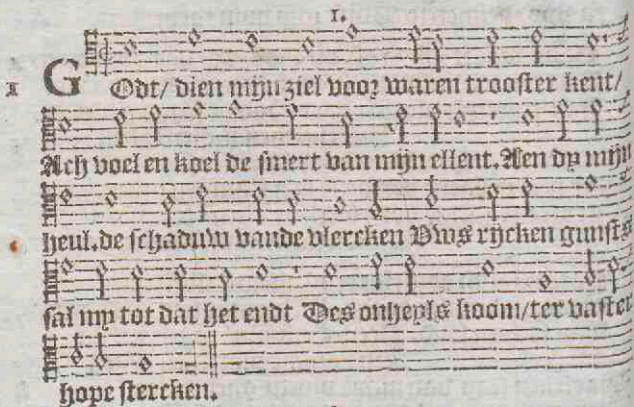 1.
1 GOdt/ dien mijn ziel voor waren trooster kent/
Ach voel en koel de smert van mijn ellent. Aen dy mijn
heul. de schaduw vande vlercken Uws rijcken gunsts
sal my tot dat het endt Des onheyls koom/ter vaster
hope stercken.